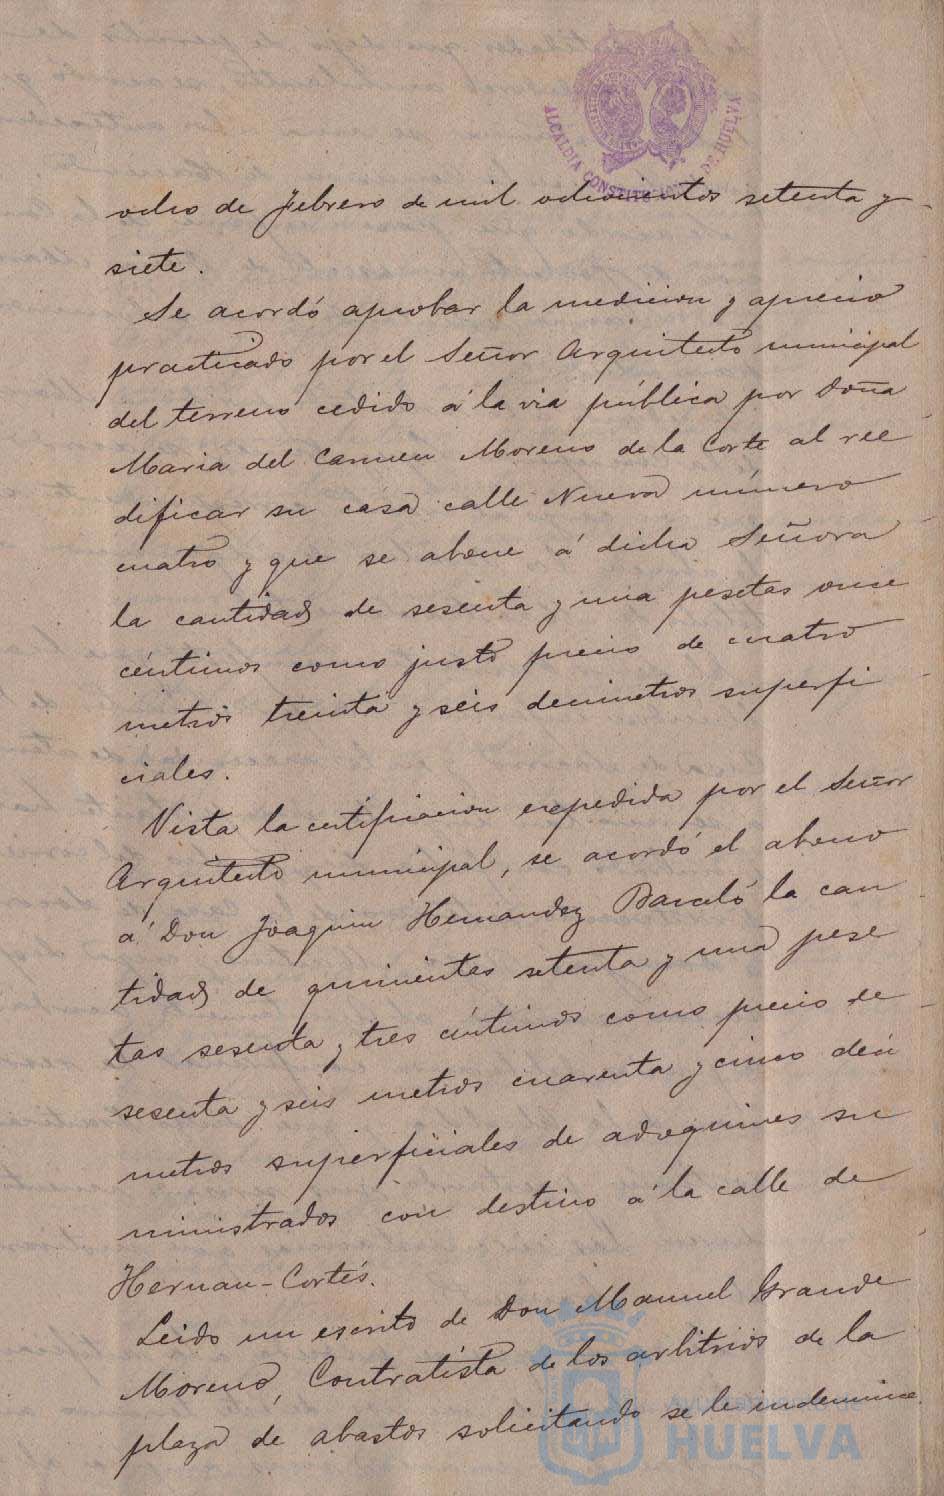 ALCALDIA CONSTITUCIONAL DE HUELVA
ocho de Febrero de mil ochocientos setenta y
siete.
Se acordó aprobar la medicion y aprecio
practicado por el Señor Arquitecto municipal
del terreno cedido á la via pública por Doña
Maria del Carmen Moreno de la Corte al ree
dificar su casa calle Nueva número
cuatro y que se abone á dicha Señora
la cantidad de sesenta y una pesetas once
céntimos como justo precio de cuatro
metros treinta y seis decimetros superfi
ciales.
Vista la certificacion expedida por el Señor
Arquitecto municipal, se acordó el abono
á Don Joaquin Hernandez Barceló la can
tidad de quinientas setenta y una pese
tas sesenta y tres céntimos como precio de
sesenta y seis metros cuarenta y cinco deci
metros superficiales de adoquines su
ministrados con destino á la calle de
Hernan-Cortés.
Leido un escrito de Don Manuel Grande
Moreno, Contratista de los arbitrios de la
plaza de abastos solicitando se le indemnice
HUELVA